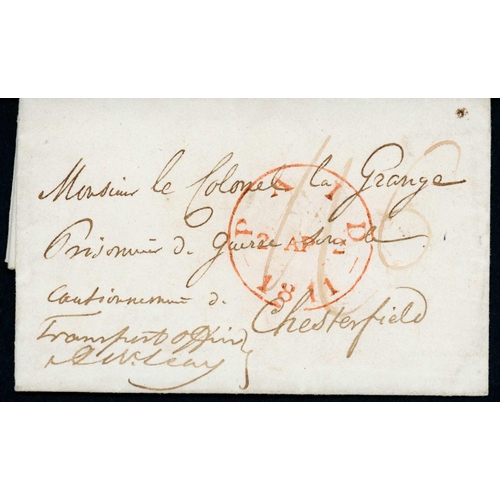 Monsieur le Colonel la Grange
Prisonnier de Guerre sous le
cautionnement de
Chesterfield
Transport office
A McLeay
PAID
2 AP 2
1811
1/6